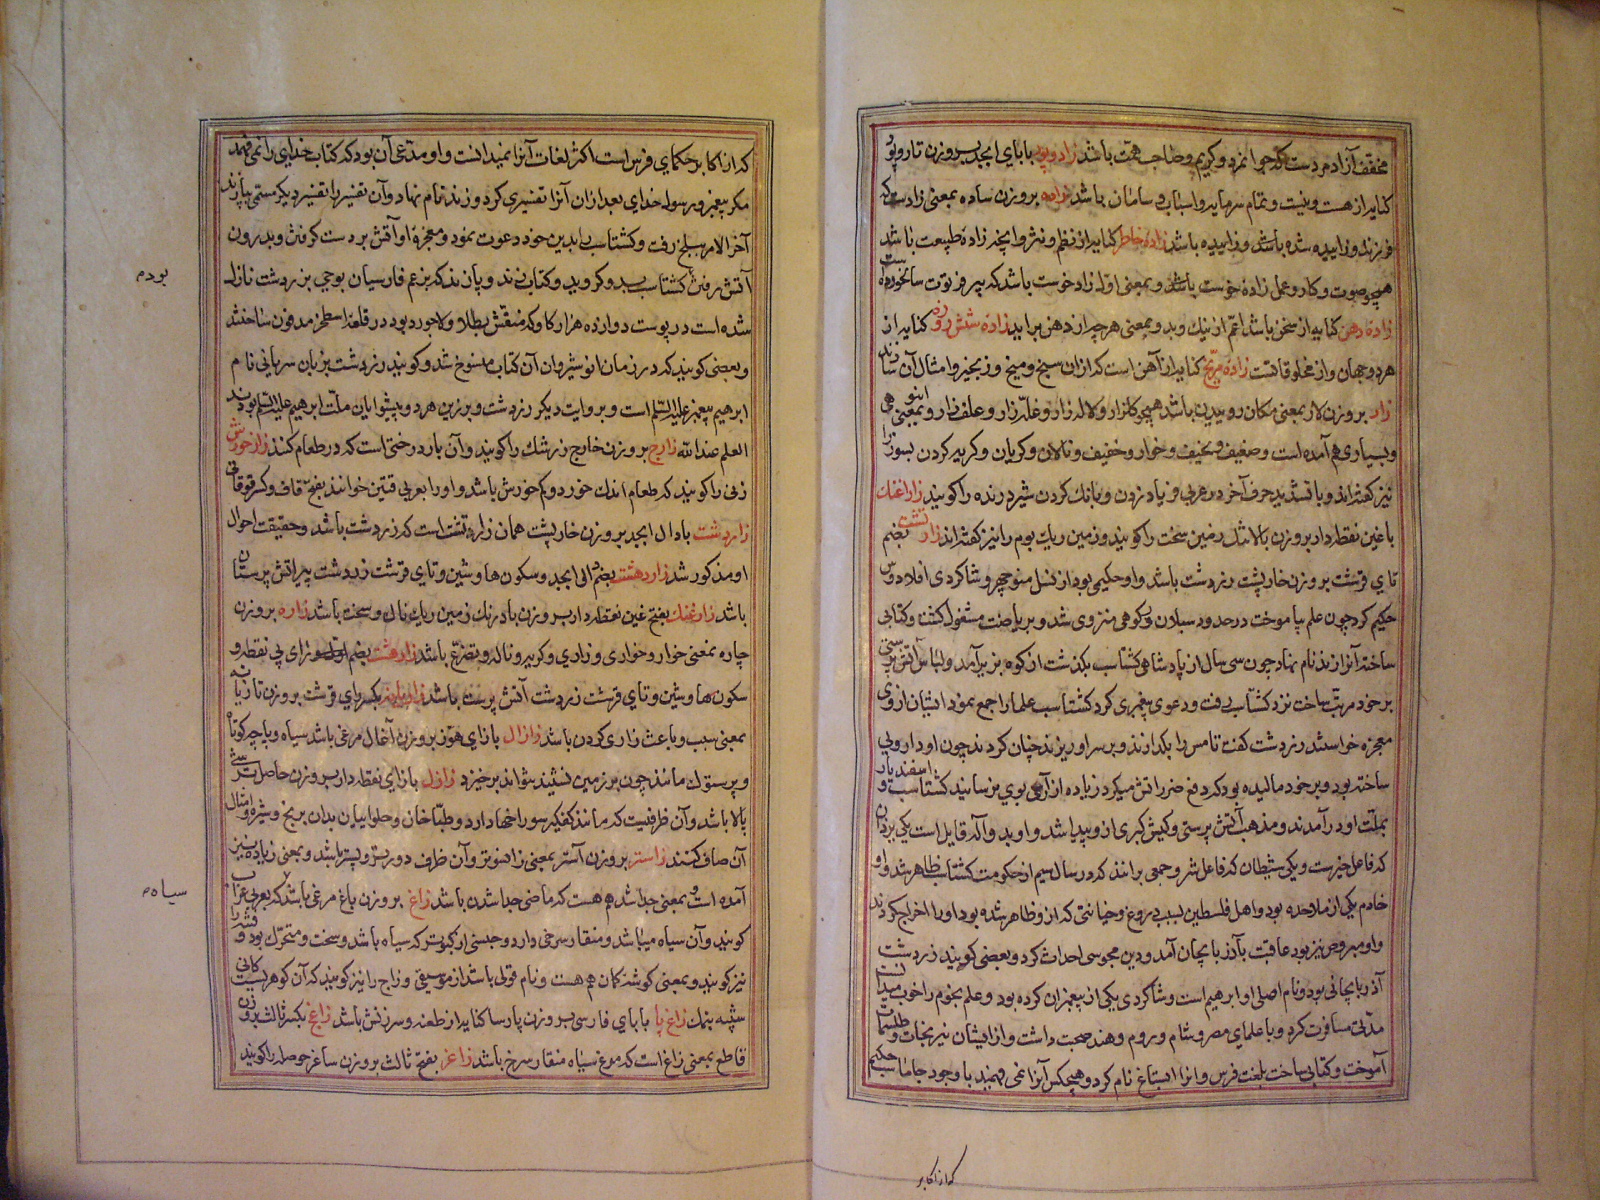 مخفف آزاد مردست که جوانمرد و کریم و صاحب همت باشد زاد و بود با بای ابجد بر وزن تار و پود
کنایه از هست و نیست و تمام سرمایه و اسباب و سامان باشد زاده بر وزن ساده بمعنی زادست که
فرزند و زاییده شده باشد و زاییده باشد زاده خاطر کنایه از نظم و نثر و آنچه زاده طبیعت باشد
همچو صوت و کار و عمل زاده خوست باشد و بمعنی اول زاد خوست باشد که پیر فرتوت سالخورده است
زاده دهن کنایه از سخن باشد اعم از نیک و بد و بمعنی هر چه از دهن برآید زاده شش روزه کنایه از
هر دو جهان و از مخلوقاتست زاده مریخ کنایه از آهن است که از ان سیخ و میخ و زنجیر و امثال آن سازند
زار بر وزن لار بمعنی مکان روییدن باشد همچو گلزار و لاله زار و غله زار و علف زار و بمعنی انبوهی
و بسیاری هم آمده است و ضعیف و نحیف و خوار و خفیف و نالان و گریان و گریه کردن بسوز را
نیز گفته‌اند و با تشدید حرف آخر در عربی فریاد زدن و بانک کردن شیر درنده را گویند زاراغنک
با غین نقطه دار بر وزن بالا تنک زمین سخت را گویند و زمین ریک بوم را نیز گفته‌اند زارتشت بضم
تای قرشت بر وزن خارپشت زردشت باشد و او حکیمی بود از نسل منوچهر و شاکردی افلادوس
حکیم کرد چون علم بیاموخت در حدود سبلان بکوهی منزوی شد و بریاضت مشغول گشت و کتابی
ساخته آنرا زند نام نهاد چون سی سال از پادشاهی گشتاسب بگذشت از کوه بزیر آمد و لباس آتش پرستی
بر خود مرتب ساخت نزد گشتاسب رفت و دعوی پیغمبری کرد گشتاسب علما را جمع نمود ایشان از وی
معجزه خواستند زردشت گفت تا مس را بگدازند و بر سر او ریزند چنان کردند چون او داروئی
ساخته بود و بر خود مالیده بود که دفع ضرر آتش میکرد زیاده از آن بوی نرسانید گشتاسب و اسفندیار
بملت او درآمدند و مذهب آتش پرستی و کیش گبری از و پیدا شد و او بدو آله قایل است یکی یزدان
که فاعل خیرست و یکی شیطان که فاعل شر و جمعی برانند که در سال سیم از حکومت گشتاسب ظاهر شد و او
خادم یکی از ملاحده بود و اهل فلسطین بسبب دروغ و خیانتی که از و ظاهر شده بود او را اخراج کردند
و او مبروص نیز بود عاقبت بآذربایجان آمد و دین مجوسی احداث کرد و بعضی گویند زردشت
آذربایجانی بود و نام اصلی او ابرهیم است و شاکردی یکی از پیغمبران کرده بود و علم نجوم را خوب میدانست
مدتی مسافرت کرد و با علمای مصر و شام و روم و هند صحبت داشت و از ایشان نیرنجات و طلسمات
آموخت و کتابی ساخت بلغت فرس و آنرا ابستاغ نام کرد و هیچکس آنرا نمی فهمید با وجود جاماسب حکیم
که از اکابر
که از اکابر حکمای فرس است اکثر لغات آنرا نمیدانست و او مدعی آن بود که کتاب خدای را نمی فهمد
مکر پیغمبر و رسول خدای بعد از ان آنرا تفسیری کرد و زند نام نهاد و آن تفسیر را بتفسیر دیکر مسمی بپازند
آخر الامر ببلخ رفت و گشتاسب را بدین خود دعوت نمود و معجزه او آتش بر دست گرفتن و بدرون
آتش رفتن گشتاسب بدو گروید و کتاب زند و پازند که بزعم فارسیان بوحی بزردشت نازل
بودم
شده است در پوست دوازده هزار گاو که منقش بطلا و لاجورد بود در قلعه اسطخر مدفون ساختند
و بعضی گویند که در زمان انوشیروان آن کتاب منسوخ شد و گویند زردشت بزبان سریانی نام
ابرهیم پیغمبر علیه السلم است و بروایت دیگر زردشت و برزین هر دو پیشوایان ملت ابرهیم علیه السلم بودند
العلم عند الله زارج بر وزن خارج زرشک را گویند و آن بار درختی است که در طعام کنند زار خورش
زنی را گویند که طعام اندک خورد و کم خورش باشد و او را بعربی قتین خوانند بفتح قاف و کسر فوقانی
زاردشت با دال ابجد بر وزن خارپشت همان زارتشت است که زردشت باشد و حقیقت احوال
او مذکور شد زاردهشت بضم دال ابجد و سکون ها و شین و تای قرشت زردشت پیر آتش پرستان
باشد زارغنک بفتح غین نقطه دار بر وزن بادرنک زمین ریک ناک و سخت باشد زاره بر وزن
چاره بمعنی خوار و خواری و زاری و گریه و ناله و تضرع باشد زارهشت بضم رای بی نقطه و
سکون ها و شین و تای قرشت زردشت آتش پرست باشد زاریانه بکسر رای قرشت بر وزن تازیانه
بمعنی سبب و باعث زاری کردن باشد زازال با زای هوز بر وزن آغال مرغی باشد سیاه و پاچه کوتاه
و پرستوک مانند چون بر زمین نشیند نتواند برخیزد زازل با زای نقطه دار بر وزن حاصل ترشی
پالا باشد و آن ظرفیست که مانند کفگیر سوراخها دارد و طباخان و حلواییان بدان برنج و شیره و امثال
آن صاف کنند زاستر بر وزن آستر بمعنی زانسوتر و آن طرف دورتر و پستر باشد و بمعنی زیاده نیز
آمده است و بمعنی جدا شد هم هست که ماضی جدا شدن باشد زاغ بر وزن باغ مرغی باشد که بعربی غراب
سیاهم
گویند و آن سیاه میباشد و منقار سرخی دارد و جنسی از کبوتر که سیاه باشد و سخت و متحرک بود و فشه را
نیز گویند و بمعنی گوشه کمان هم هست و نام قولی باشد از موسیقی و زاج را نیز گویند که آن گوهر کانی
شبیه بنمک زاغ پا با بای فارسی بر وزن پارسا کنایه از طعنه و سرزنش باشد زاغج بکسر ثالث بر وزن
قاطع بمعنی زاغ است که مرغ سیاه منقار سرخ باشد زاغر بفتح ثالث بر وزن ساغر حوصله را گویند